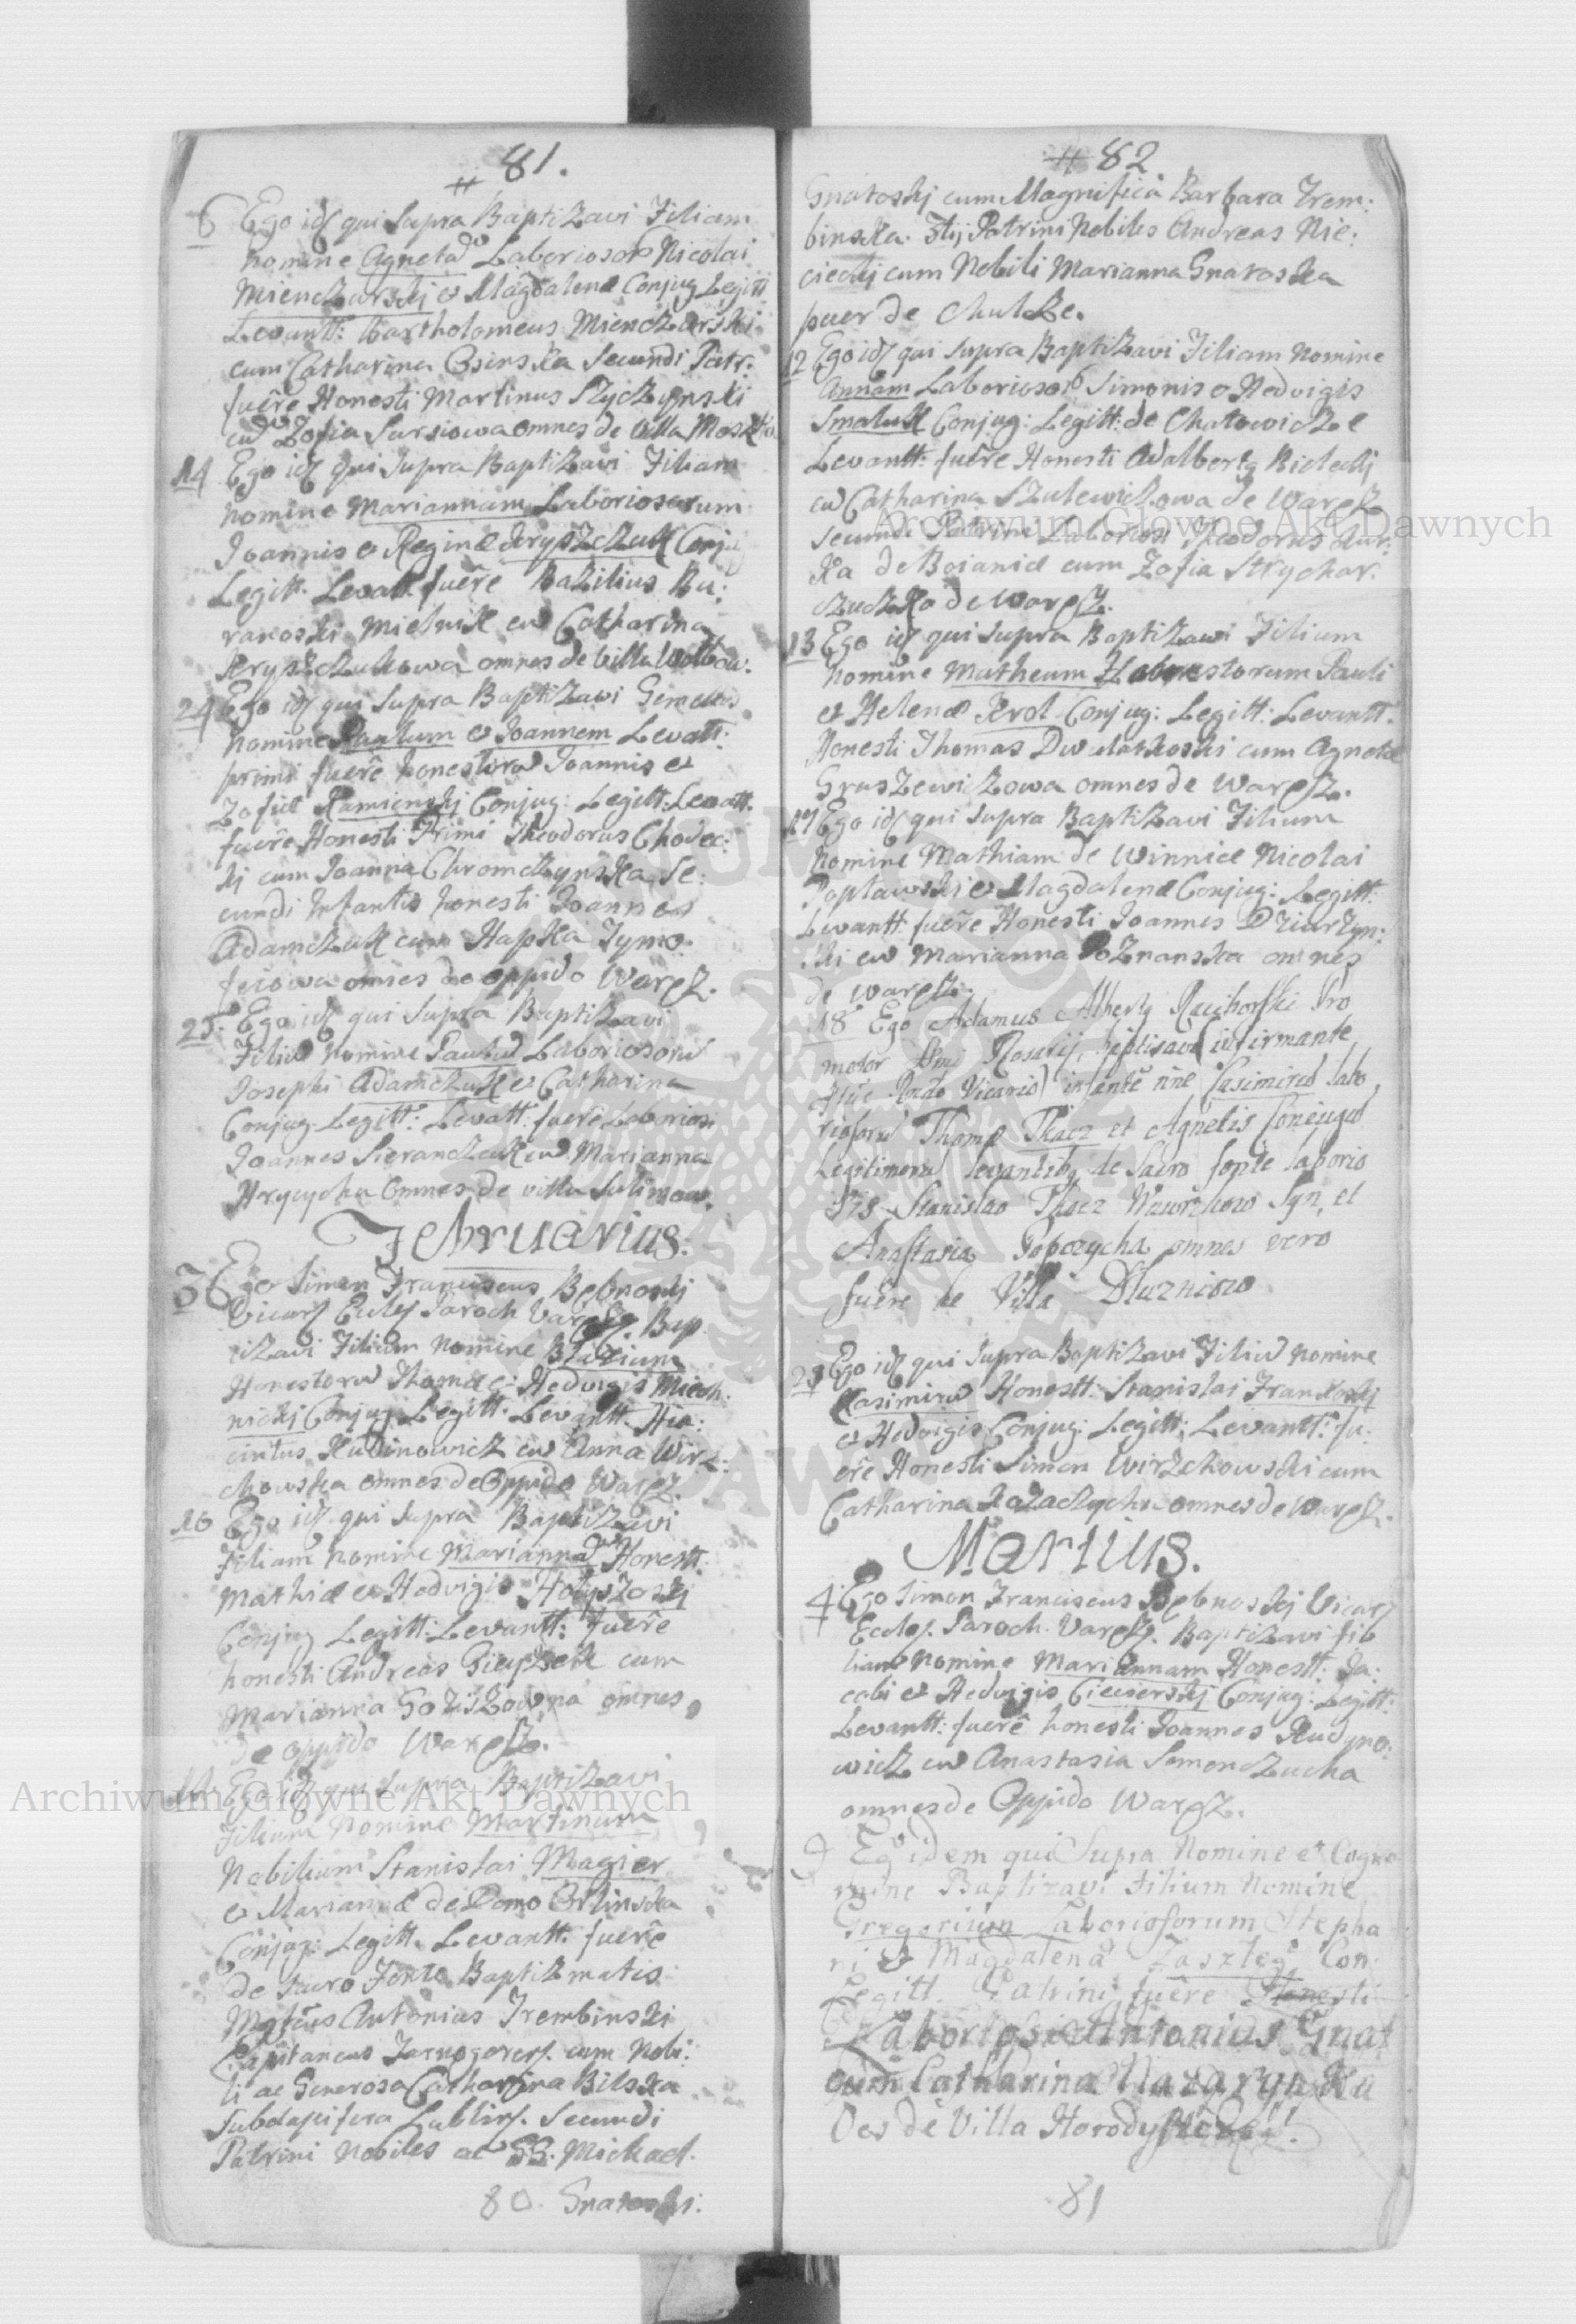 81.
6 Ego idq qui supra BaptiZavi Filiam
nomine Agneta Laborioso Nicolai
MiencZarskj et Magdalenæ Conjug Legitt
Levantt: Bartholomeus MiencZarski
cum Catharina OsinsKa Secundi Patr:
fuêre Honesti Martinus SZycZynski
Zofia Sarsiowa omnes de Villa
14 Ego idq qui supra BaptiZavi Filiam
nomine Mariannam Laboriosarum
Joannis et Reginæ KryszcZuK Conj
Legitt. Levatt. fuêre BaZilius Bu:
rakoski MielniK cu Catharina
KryszcZukowa omnes de Villa
24 Ego idq qui supra BaptiZavi Gemellos
nomine Paulum et Joannem Levatt:
primi fuêre honestoru Joannis et
Zofiæ Kamienskj Conjug: Legitt: Levatt.
fuêre Honesti Primi Theodorus Chodec:
kj cum Joanna ChromcZynsKa Se:
cundi Infantis honesti Joannes
AdamcZuK cum HapKa Tymo:
feiowa omnes de oppido Waręz.
25. Ego idq qui supra BaptiZavi
Filiu nomine Paulu Laboriosoru
Josephi AdamcZuK et Catharina
Conjug. Legitt: Levatt: fuêre Laboriosi
Joannes SierancZuK cu Marianna
Hrycycha omnes de villa Sulimow.
Februarius:
3 Ego Simon Franciscus Bebnoskj
Vicarq Eccleq Paroch Bap
tiZavi Filium nomine BlaZium
Honestoru Thomæ et Hedvigis Miech:
nickj Conjug Legitt. Levantt. Hia:
cintus RudinowicZ cu Anna Wirz:
chowska omnes de Oppido Waręz.
10 Ego idq qui supra BaptiZavi
Filiam nomine Marianna Honestt:
Mathiæ et Hedvigis HołysZoskj
Conjug Legitt: Levantt: fuêre
honesti Andreas CiepZeiK cum
Marianna omnes
de oppido Waręz.
Ego idq qui supra BaptiZavi
Filium nomine Martinum
Nobilium Stanislai Magier
et Mariannæ de Domo Orlinska
Conjug: Legitt. Levantt. fuêre
de Sacro Fonte BaptiZmatis
Antonius Trembinski
Capitaneus cum Nobi:
li ac Generosa Catharina BilsKa
Subdapifera Secundi
Patrini Nobiles ac GG. Michael.
80. Gnatoski:
82
Gnatoskj cum Magnifica Barbara Trem:
binska. Patrini Nobiles Andreas Nie:
cieckj cum Nobili Marianna GnatosKa
puer de
12 Ego idq qui supra BaptiZavi Filiam nomine
Annam Simonis et Hedvigis
SmaluK Conjug: Legitt: de ChatowicZe
Levantt: fuêre Honesti Adalbertq Bieleckj
cu Catharina SZulewicZowa de Waręz
Secundi Patrini Laboriosi Theodorus Hur:
Ka de Boianic cum Zofia Strychar:
cZucZKa de Waręz.
13 Ego idq qui supra BaptiZawi Filium
nomine Matheum Honestorum Pauli
et Helenæ Krol Conjug: Legitt: Levantt.
Honesti Thomas cum Agneta
GrusZewicZowa omnes de Waręz.
17 Ego idq qui supra BaptiZavi Filium
nomine Mathiam de Winnice Nicolai
Popławski et Magdalenæ Conjug: Legitt:
Levantt: fuêre Honesti Joannes
ski cu Marianna PoZnanska omnes
de Waręz.
18 Ego Adamus Albertq Raciborski Pro
motor Rosarij, baptisavi infirmante
Rndo Vicario infante nne Casimiru labo
riosoru Thomæ Tkacz et Agnetis Conjugu
Legitimoru levantibq de Sacro fonte laborio
sis Stanislao Tkacz Wawrzkow Syn, et
Anastasia Popczycha omnes vero
fuêre de Villa Dłuzniow
23 Ego idq qui supra BaptiZavi Filiu nomine
Casimiru Honestt: Stanislai Frankoskj
et Hedvigis Conjug: Legitt: Levantt: fu:
ere Honesti Simon Wirzchowski cum
Catharina KaZacZycha omnes de Waręz.
Martius.
4 Ego Simon Franciscus Bębnoskj Vicarq
Eccleq. Paroch. Varęz. BaptiZavi fil
liam nomine Mariannam Honestt: Ja:
cobi et Hedvigis Ciecierskj Conjug: Legitt:
Levantt: fuêre honesti Joannes Rudyno:
wicZ cu Anastasia SemoncZucha
omnes de Oppido Waręz.
9 Eg idem qui Supra Nomine et Cogno
mine Baptizavi Filium Nomine
Gregorium Laboriosorum Stepha
ni et Magdalena Con:
Legitt. Patrini fuêre Honesti
Laboriosi Antonius Gnat
cum Catharina
Oes de Villa
81
Archiwum Główne Akt Dawnych
Archiwum Główne Akt Dawnych